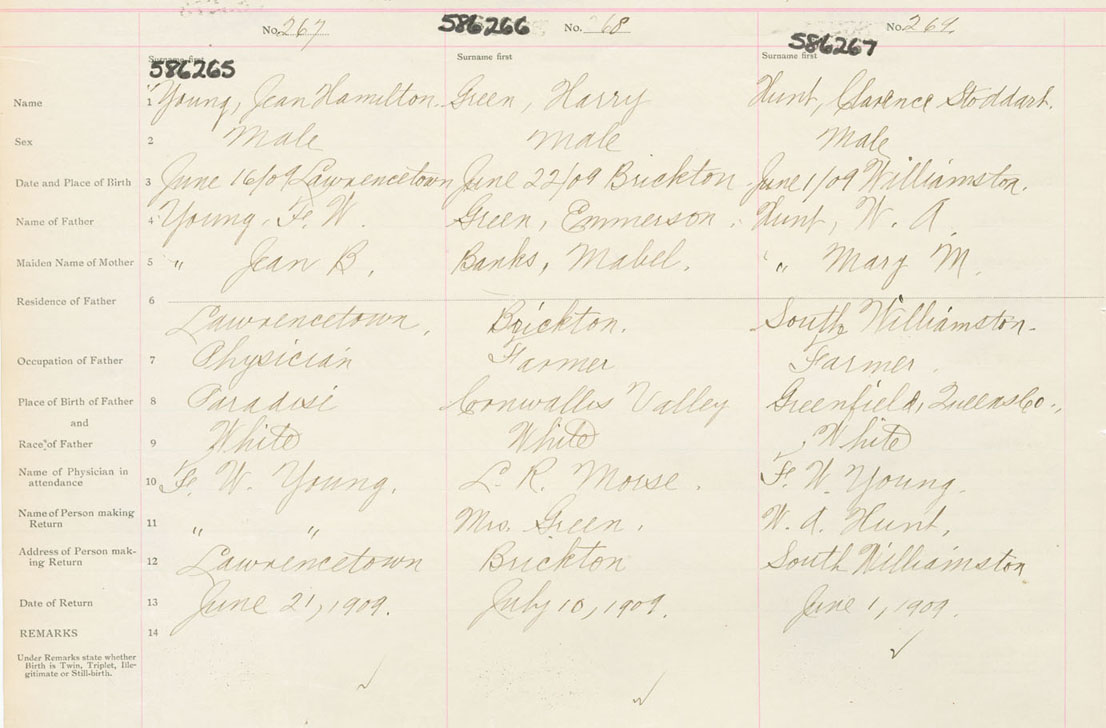 No. 267 586266 No. 268 586267 No. 269.
Surname first Surname first Surname first
586265
Name 1 Young, Jean Hamilton. Green, Harry Hunt, Clarence Stoddart.
Sex 2 Male Male Male
Date and Place of Birth 3 June 16/09 Lawrencetown June 22/09 Brickton June 1/09 Williamston.
Name of Father 4 Young, F. W. Green, Emmerson. Hunt, W. A.
Maiden Name of Mother 5 " Jean B. Banks, Mabel. " Mary M.
Residence of Father 6
Lawrencetown, Brickton. South Williamston.
Occupation of Father 7 Physician Farmer Farmer.
Place of Birth of Father 8 Paradise Cornwallis Valley Greenfield, Queens Co.,
and
Race of Father 9 White White White
Name of Physician in
attendance 10 F. W. Young. L. R. Morse. F. W. Young.
Name of Person making
Return 11 " " Mrs. Green. W. A. Hunt,
Address of Person mak-
ing Return 12 Lawrencetown Brickton South Williamston
Date of Return 13 June 21, 1909. July 10, 1909. June 1, 1909.
REMARKS 14
Under Remarks state whether
Birth is Twin, Triplet, Ille-
gitimate or Still-birth.